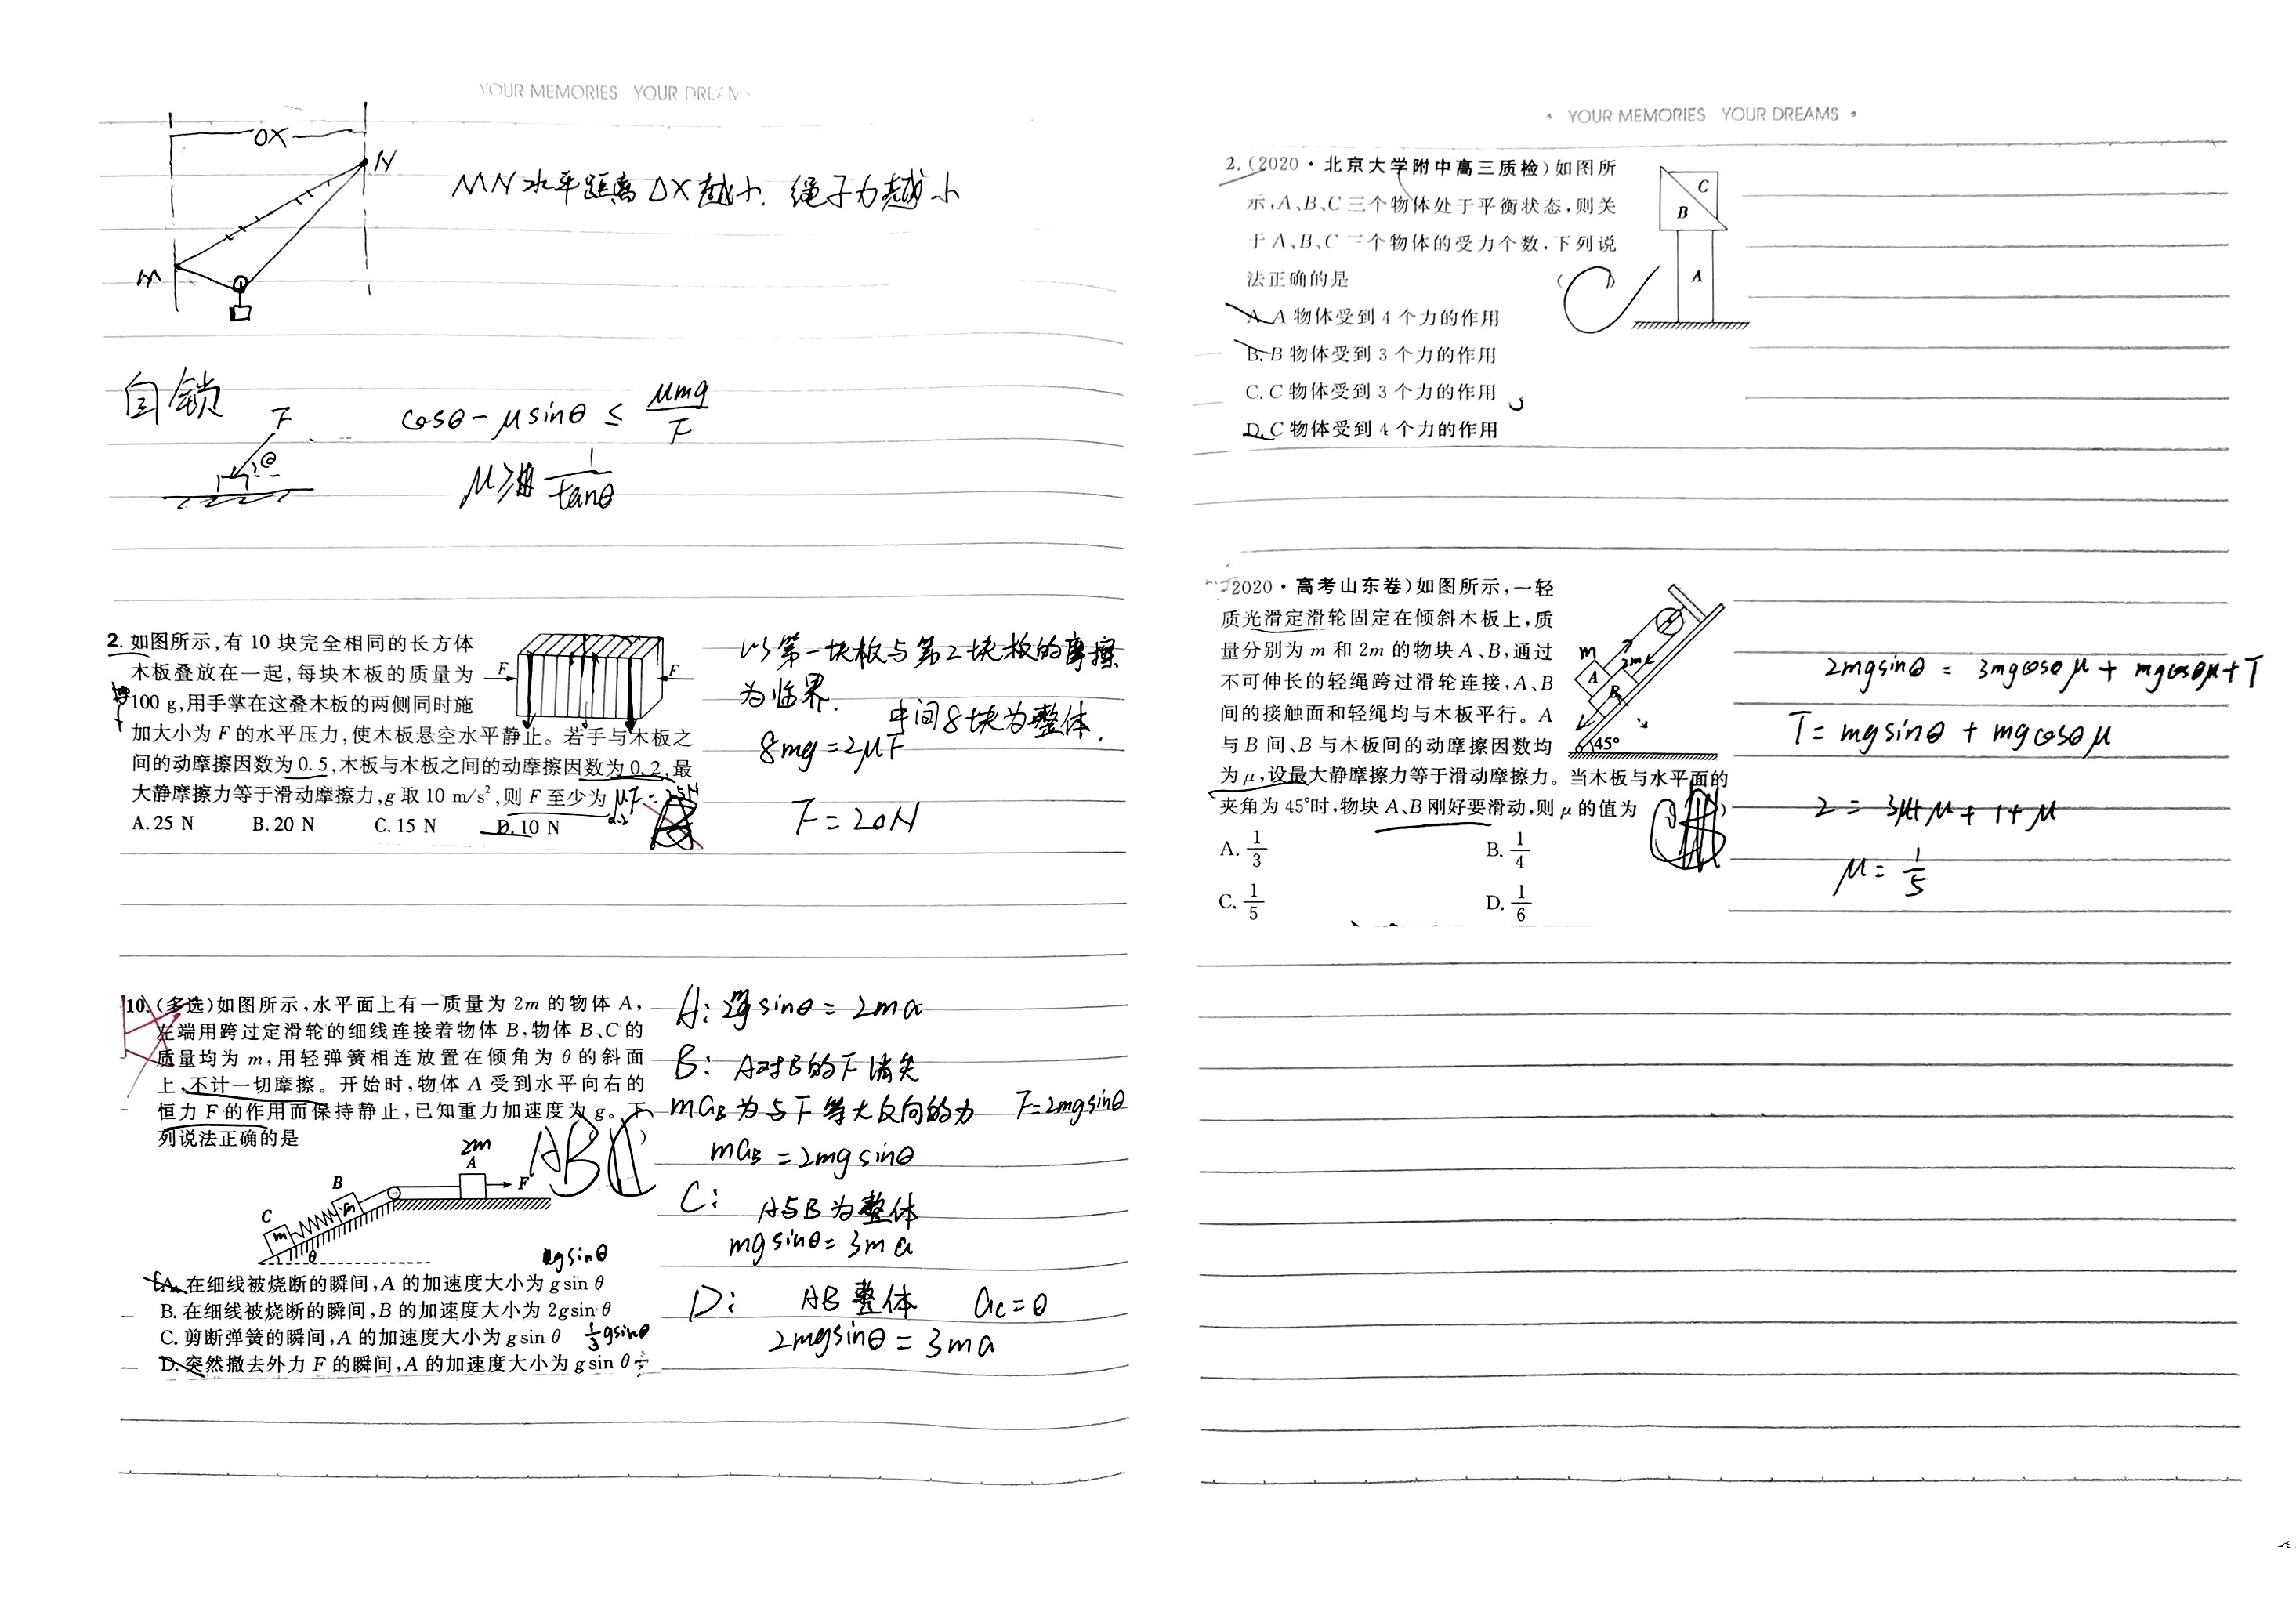 YOUR MEMORIES YOUR DREAM
ΔX
N
M
MN水平距离ΔX越小,绳子力越小
自锁
F
θ
cosθ-μsinθ ≤ μmg/F
μ≥ 1/tanθ
2. 如图所示,有 10 块完全相同的长方体
木板叠放在一起,每块木板的质量为
100 g,用手掌在这叠木板的两侧同时施
加大小为 F 的水平压力,使木板悬空水平静止。若手与木板之
间的动摩擦因数为 0.5,木板与木板之间的动摩擦因数为 0.2,最
大静摩擦力等于滑动摩擦力,g 取 10 m/s²,则 F 至少为
A. 25 N B. 20 N C. 15 N D. 10 N
F
F
以第一块板与第2块板的摩擦
为临界.
中间8块为整体.
8mg=2μF
F=20N
10. (多选)如图所示,水平面上有一质量为 2m 的物体 A,
左端用跨过定滑轮的细线连接着物体 B,物体 B、C 的
质量均为 m,用轻弹簧相连放置在倾角为 θ 的斜面
上,不计一切摩擦。开始时,物体 A 受到水平向右的
恒力 F 的作用而保持静止,已知重力加速度为 g。下
列说法正确的是
)
AB
2m
A
F
B
m
C
m
θ
gsinθ
A. 在细线被烧断的瞬间,A 的加速度大小为 gsin θ
B. 在细线被烧断的瞬间,B 的加速度大小为 2gsin θ
C. 剪断弹簧的瞬间,A 的加速度大小为 gsin θ 1/3 gsinθ
D. 突然撤去外力 F 的瞬间,A 的加速度大小为 gsin θ
A: 2mgsinθ = 2ma
B: A对B的F消失
maB为与F等大反向的力 F=2mgsinθ
maB =2mgsinθ
C: A与B为整体
mgsinθ=3ma
D: AB整体 aC=0
2mgsinθ = 3ma
YOUR MEMORIES YOUR DREAMS
2. (2020·北京大学附中高三质检)如图所
示,A、B、C 三个物体处于平衡状态,则关
于 A、B、C 三个物体的受力个数,下列说
法正确的是 ( )
A. A 物体受到 4 个力的作用
B. B 物体受到 3 个力的作用
C. C 物体受到 3 个力的作用
D. C 物体受到 4 个力的作用
C
B
A
2020·高考山东卷)如图所示,一轻
质光滑定滑轮固定在倾斜木板上,质
量分别为 m 和 2m 的物块 A、B,通过
不可伸长的轻绳跨过滑轮连接,A、B
间的接触面和轻绳均与木板平行。A
与 B 间、B 与木板间的动摩擦因数均
为 μ,设最大静摩擦力等于滑动摩擦力。当木板与水平面的
夹角为 45°时,物块 A、B 刚好要滑动,则 μ 的值为 )
A. 1/3 B. 1/4
C. 1/5 D. 1/6
m
A
2m
B
45°
2mgsinθ = 3mgcosθμ + mgcosθμ+T
T= mgsinθ + mgcosθμ
2 = 3μ+μ+1+μ
μ= 1/5